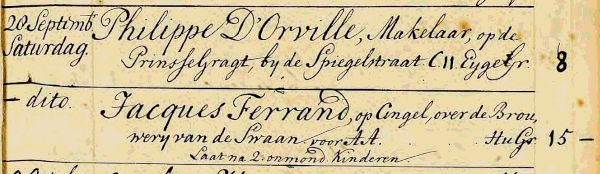 28 Septimb.
Saturdag.
Philippe D'Orville, Makelaar, op de
Prinsselgragt, by de Spiegelstraat C11 Eyge Gr.
8
— dito.
Jacques Ferrand, op Cingel, over de Brou,
wery van de Swaan voor AA. HuGr
15 —
Laat na 2. onmond Kinderen